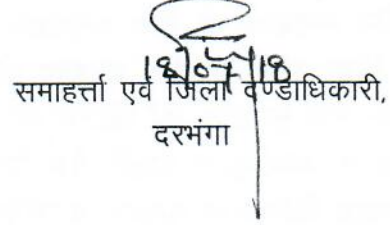 18/07/18
समाहर्त्ता एवं जिला दण्डाधिकारी,
दरभंगा